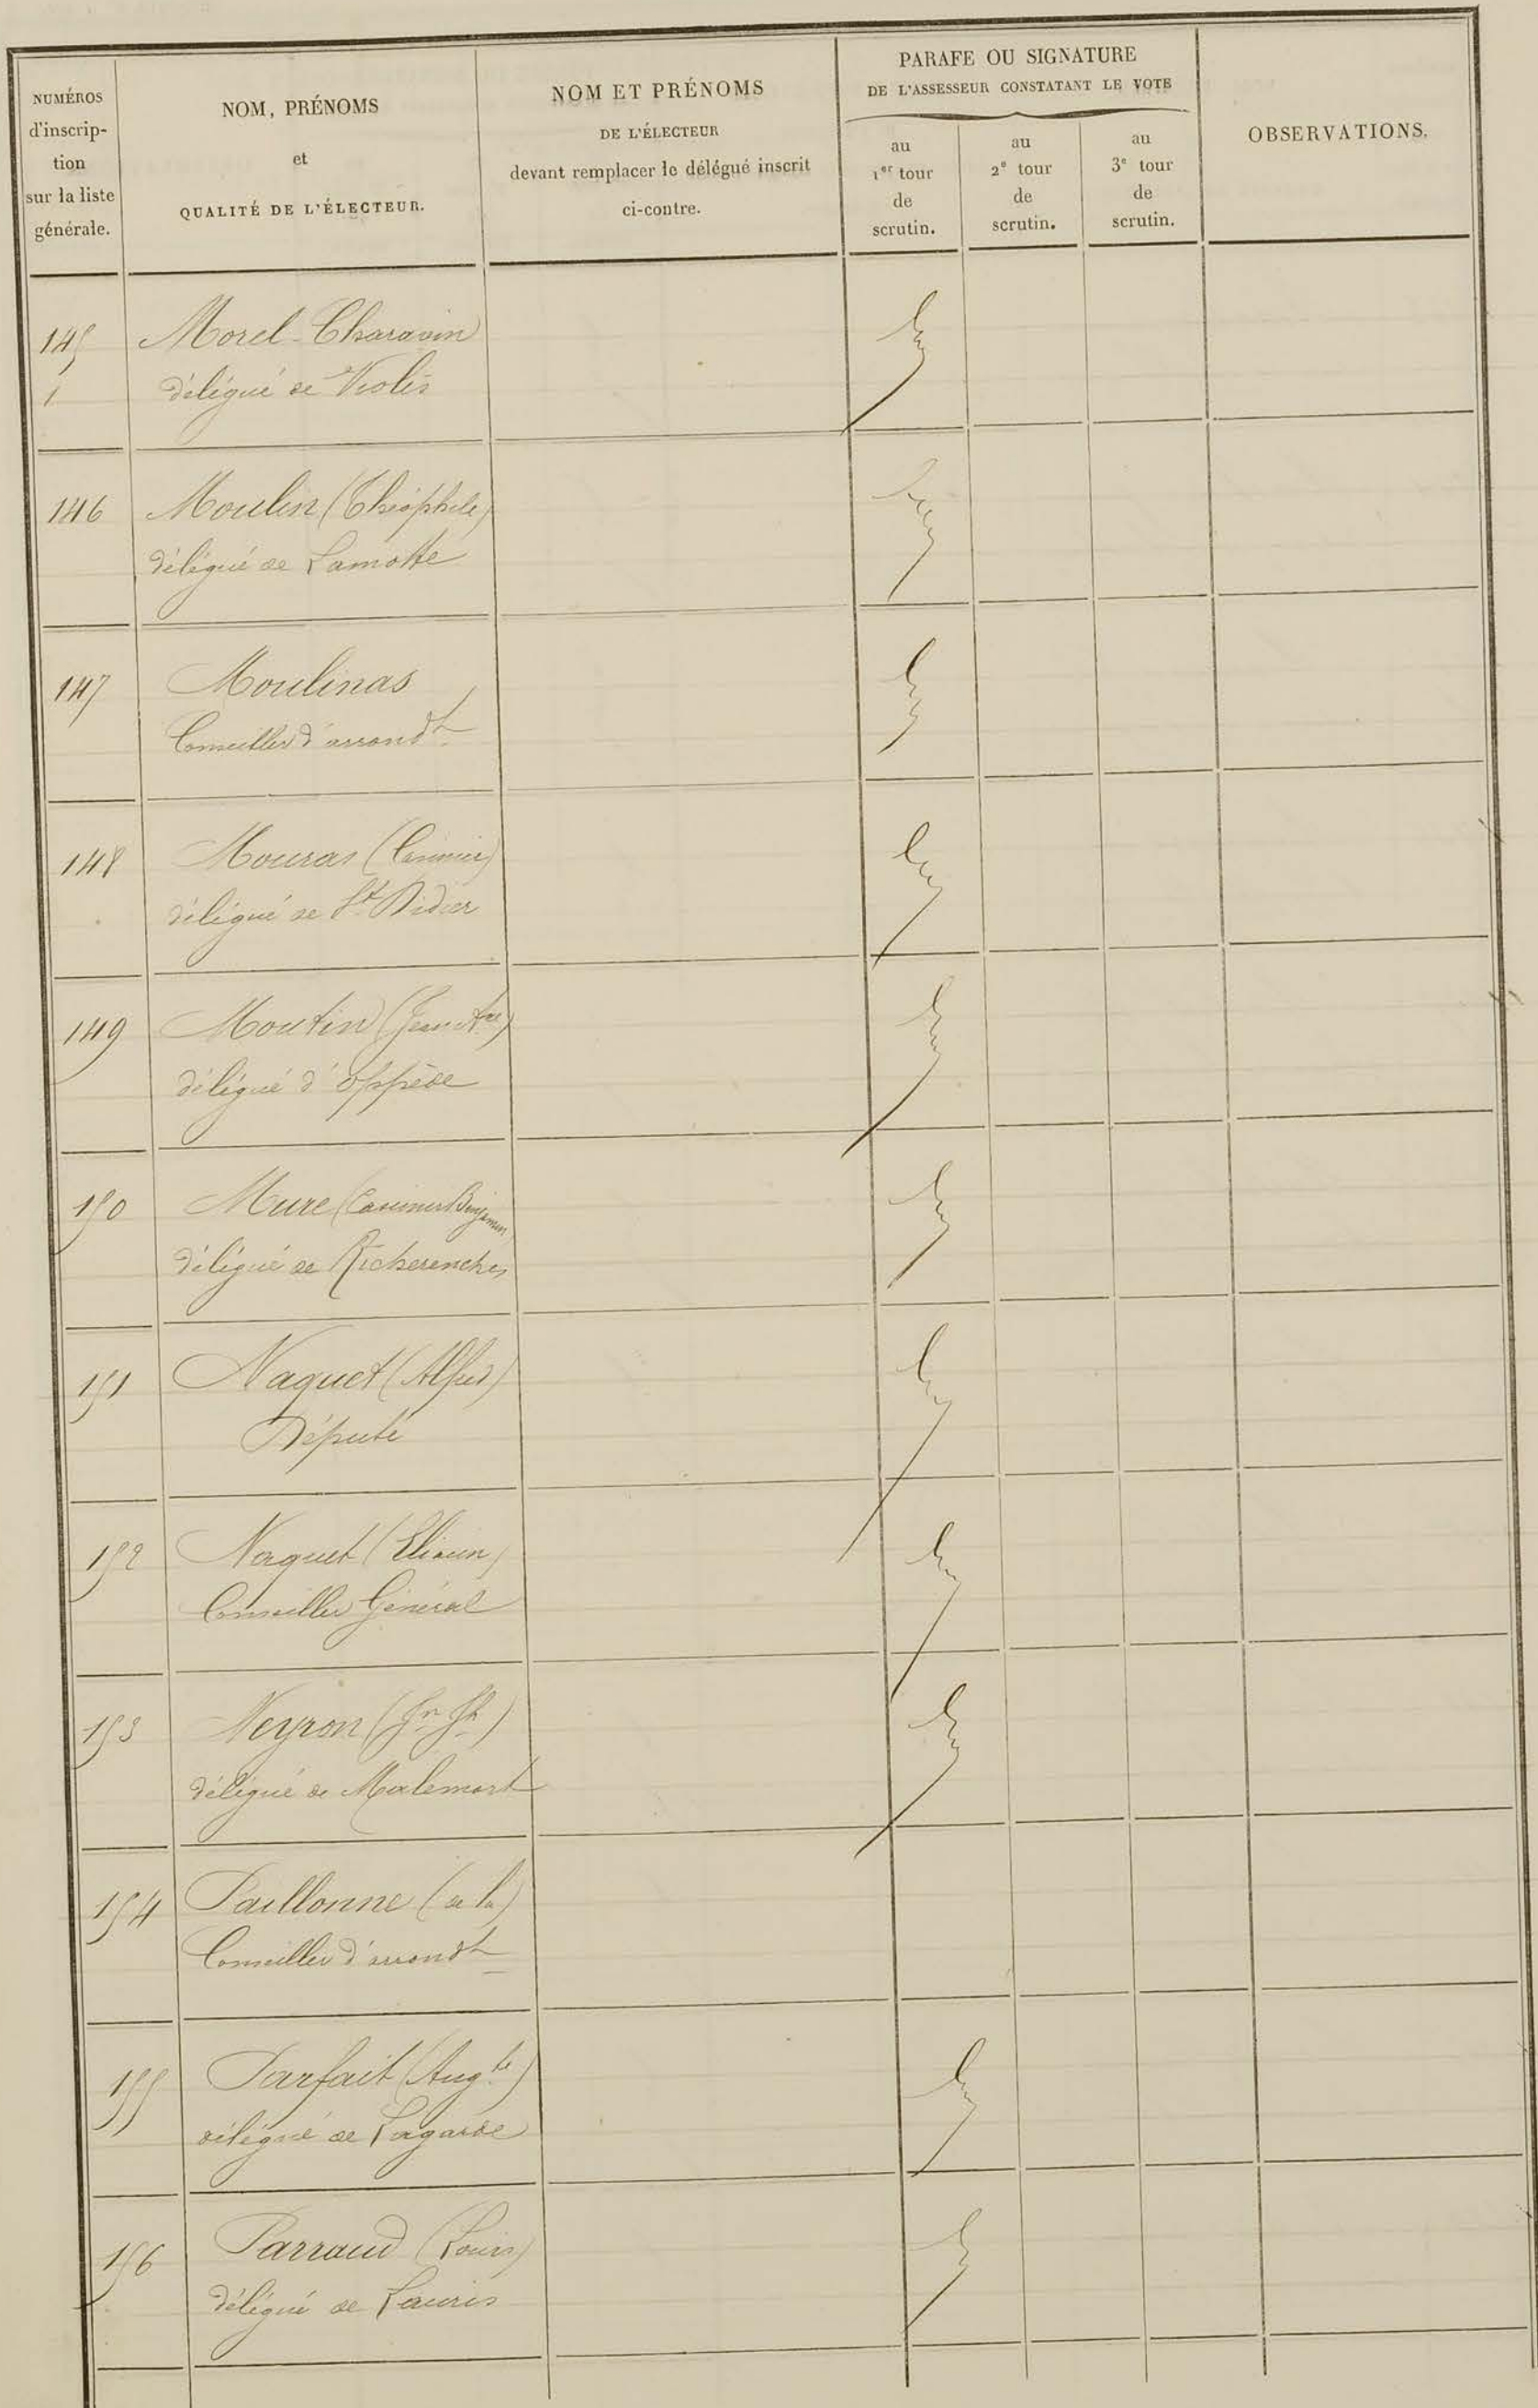 NUMÉROS
d'inscrip-
tion
sur la liste
générale.
NOM, PRÉNOMS
et
QUALITÉ DE L'ÉLECTEUR.
NOM ET PRÉNOMS
DE L'ÉLECTEUR
devant remplacer le délégué inscrit
ci-contre.
PARAFE OU SIGNATURE
DE L'ASSESSEUR CONSTATANT LE VOTE
au
1er tour
de
scrutin.
au
2e tour
de
scrutin.
au
3e tour
de
scrutin.
OBSERVATIONS.
145 Morel-Charavin
délégué de Violès
146 Moulin (Théophile)
délégué de Lamotte
147 Moulinas
Conseiller d'arrondt
148 Mouras (Casimir)
délégué de St Didier
149 Moutin (Jean
délégué d'Oppède
150 Mure (Casimir Benjamin)
délégué de Richerenches
151 Naquet (Alfred)
Député
152 Naquet (Eliacin)
Conseiller Général
153 Neyron (Jn Jh)
délégué de Malemort
154 Paillonne (de la)
Conseiller d'arrondt
155 Parfait (Augte)
délégué de Lagarde
156 Parraud (Louis)
délégué de Lauris